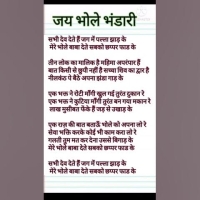 जय भोले भंडारी
सभी देव देते हैं जग में पल्ला झाड़ के
मेरे भोले बाबा देते सबको छप्पर फाड के
तीन लोक का मालिक है महिमा अपरंपार हैं
बात किसी से छुपी नहीं है सच्चा शिव का द्वार है
नीलकंठ पे बैठे अपना झंडा गाड़ के
एक भक्त ने रोटी माँगी खुल गई तुरंत दुकान रे
एक भक्त ने कुटिया माँगी तुरंत बन गया मकान रे
लाख मुसीबत फेंके हैं जड़ से उखाड़ के
एक राज़ की बात बताऊँ भोले को अपना लो रे
सेवा भक्ति करके कोई भी काम करा लो रे
गलती तुम मत कर देना उससे बिगाड़ के
सभी देव देते हैं जग में पल्ला झाड़ के
मेरे भोले बाबा देते सबको छप्पर फाड के